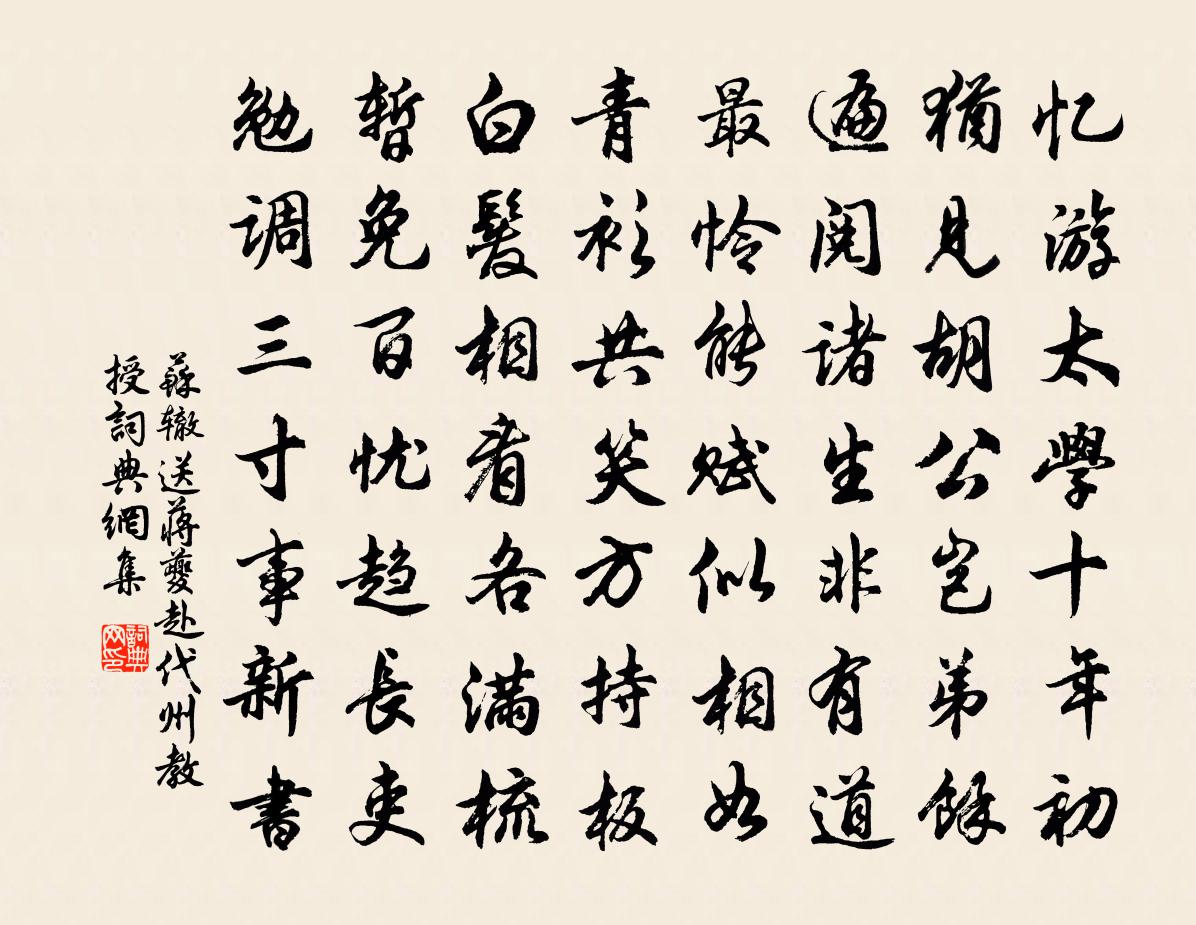 忆游太學十年初
猶見胡公岂弟餘
遍阅诸生非有道
最怜能赋似相如
青衫共笑方持板
白髮相看各满梳
暂免百忧趋长吏
勉调三寸事新書
蘇辙送蒋夔赴代州教
授詞典網集
詞典
网印